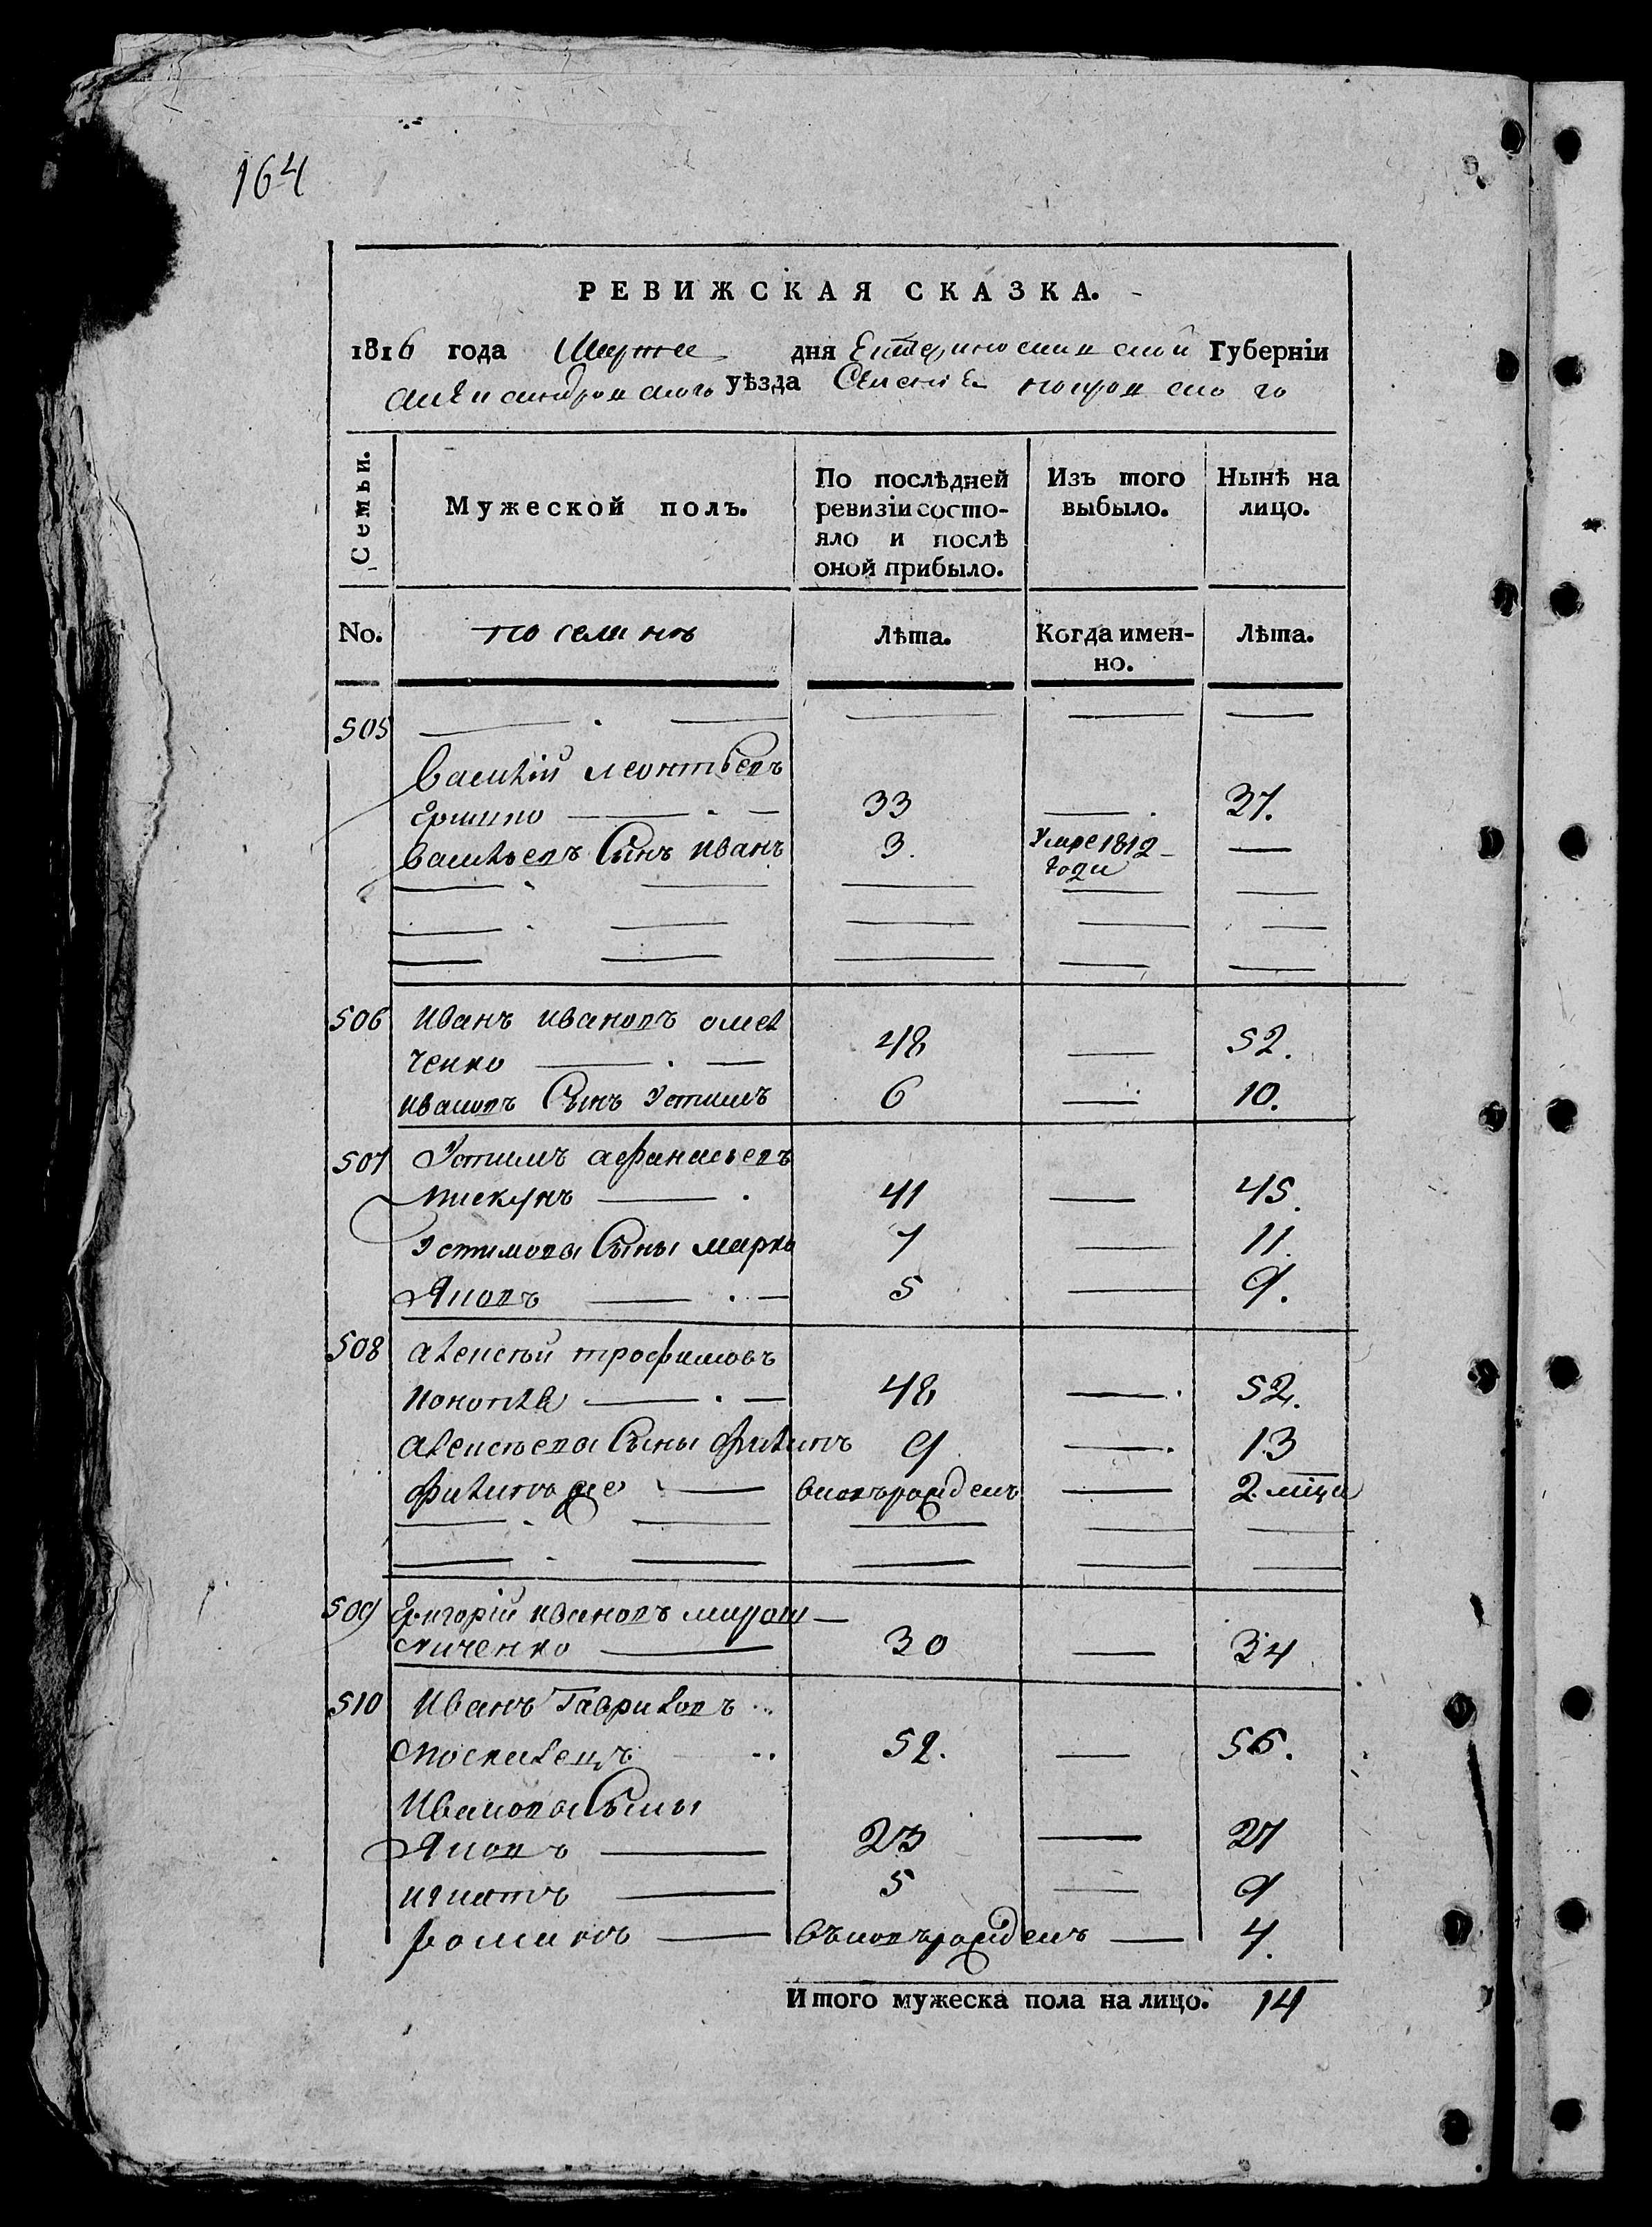 164
РЕВИЖСКАЯ СКАЗКА.
1816 года Марта дня Екатеринославской Губерніи
александровского уѣзда Селенія покровского
Семьи.
Мужеской полъ.
По послѣдней ревизіи состо-
яло и послѣ
оной прибыло.
Изъ того
выбыло.
Нынѣ на
лицо.
No. поселянъ Лѣта. Когда имен-
но. Лѣта.
505
Василій леонтьевъ
Ермино 33 37.
васильевъ Сынъ иванъ 3. Умре 1812
года
506 Иванъ ивановъ омел
ченко 48 52.
ивановъ Сынъ Устимъ 6 10.
507 Устимъ афанасьевъ
пискунъ 41 45.
Устимовы Сыны марко 7 11.
Яковъ 5 9.
508 алексѣй трофимовъ
конопля 48 52.
алексѣевы Сыны филипъ 9 13
филипъ же вновь рожденъ 2 мѣца
509 Григорій ивановъ мирош
ниченко 30 34
510 Иванъ Гавриловъ
москалецъ 52. 56.
Ивановы Сыны
Яковъ 23 27
игнатъ 5 9
романъ въновь рожденъ 4.
Итого мужеска пола на лицо. 14